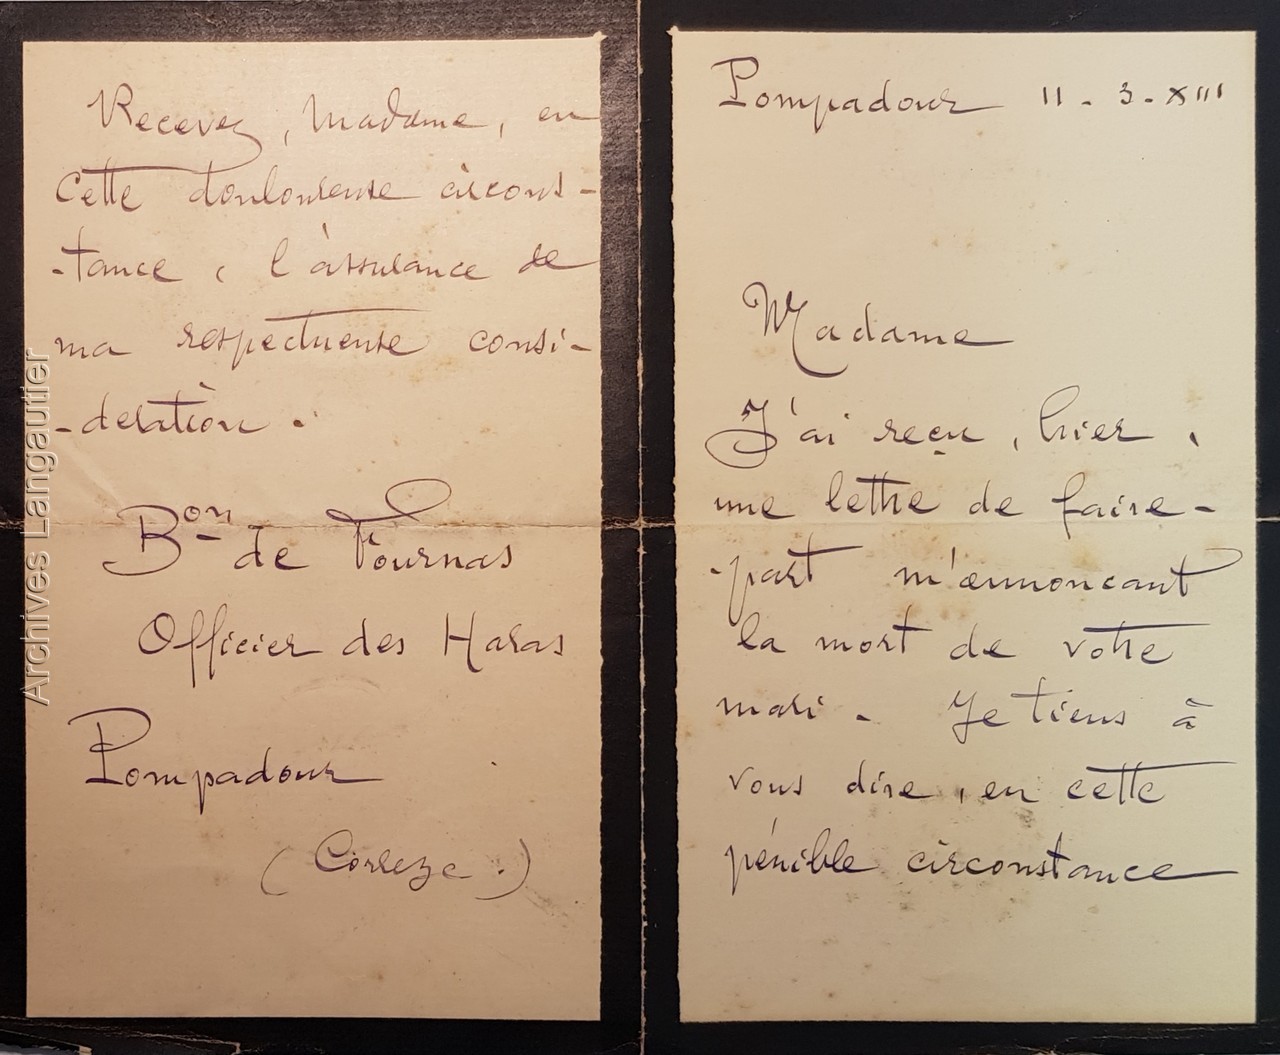 Pompadour 11-3-XIII
Madame
J'ai reçu, hier,
une lettre de faire-
-part m'annoncant
la mort de votre
mari - Je tiens à
vous dire, en cette
pénible circonstance
Recevez, Madame, en
cette douloureuse circons-
-tance, l'assurance de
ma respectueuse consi-
-dération.
Bon de Fournas
Officier des Haras
Pompadour
(Corrèze.)
Archives Langautier